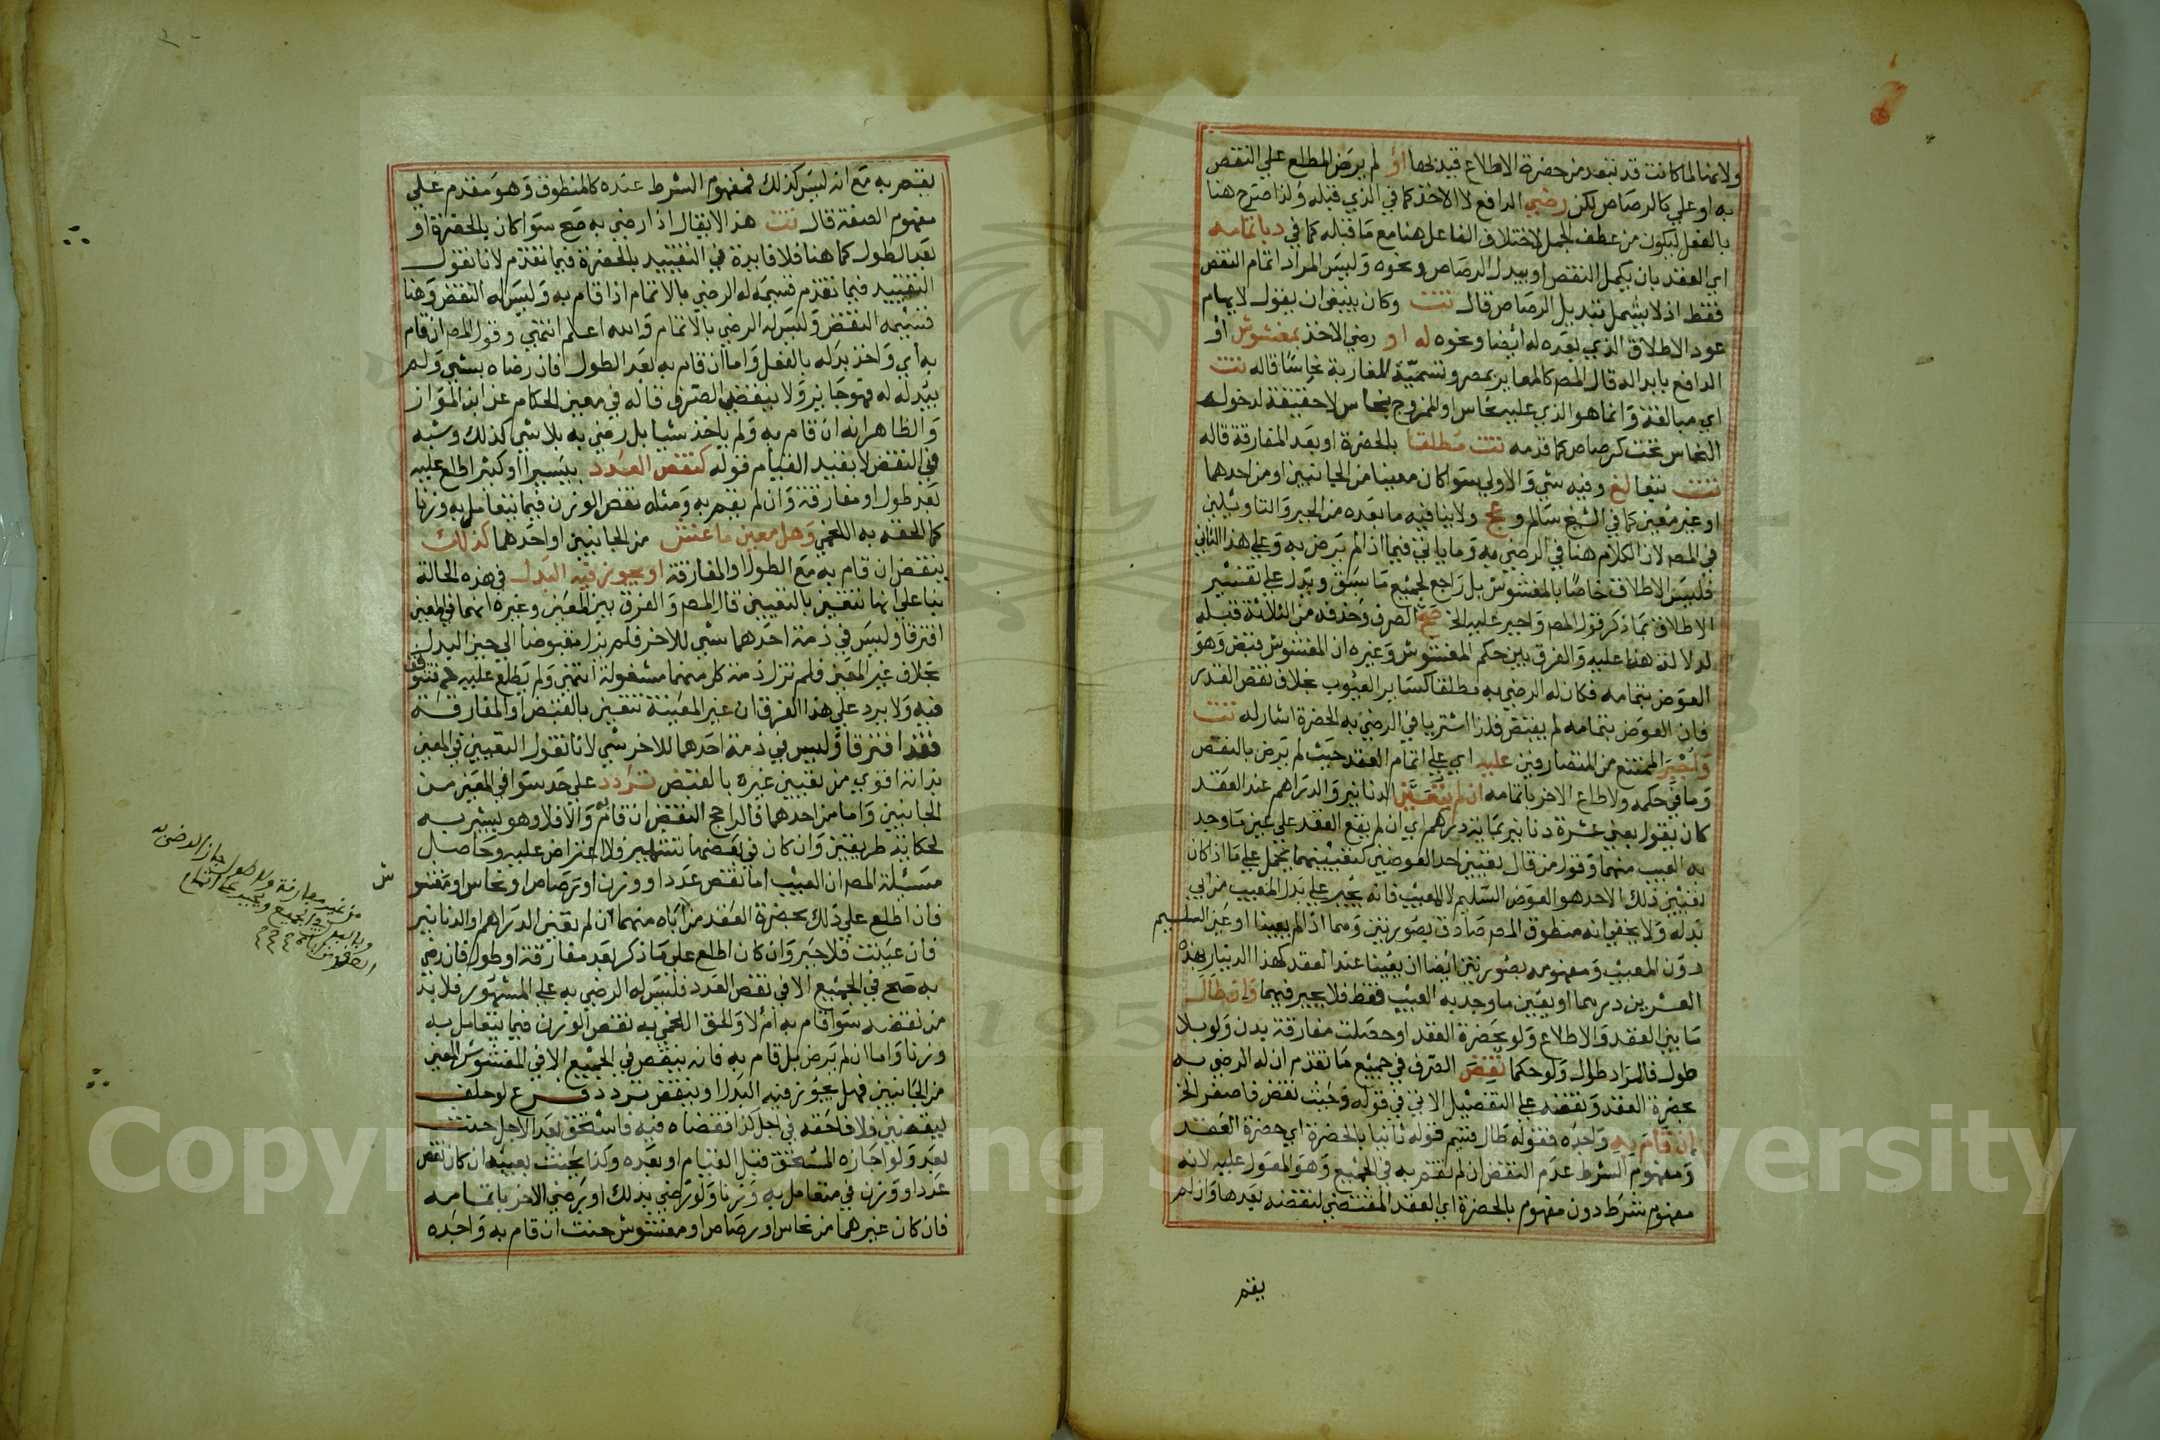 ولانهالما كانت قد تبعد من حضرة الاطلاع قيد بها او لم يرض المطلع علي النقص
به او علي كالرصاص لكن رضي الدافع لا الاخذ كما في الذي قبله ولذا صرح هنا
بالفعل ليكون من عطف الجمل لاختلاف الفاعل هنا مع ما قبله كما في د باتمامه
اي العقد بان يكمل النقص او يبدل الرصاص ونحوه وليس المراد اتمام النقص
فقط اذ لا يشمل تبديل الرصاص قال تت وكان ينبغي ان يقول لايهام
عود الاطلاق الذي بعده له ايضا ونحوه له او رضي الاخذ بمغشوش او
الدافع بابداله قال المص كالمعاير بمصر وتسميه المغاربة نحاسا قاله تت
اي مبالغة وانما هو الذي عليه نحاس او الممزوج بنحاس لا حقيقة لدخوله
النحاس تحت كرصاص كما قدمه تت مطلقا بالحضرة او بعد المفارقة قاله
تت تبعا لغ وفيه شي والاولي سوا كان معينا من الجانبين او من احدهما
او غير معين كما في الشيخ سالم وعج ولا ينافيه ما بعده من الجبر والتاويلين
في المص لان الكلام هنا في الرضي به وما ياتي فيما اذا لم يرض به وعلي هذا الثاني
فليس الاطلاق خاصا بالمغشوش بل راجع لجميع ما سبق ويدل علي تفسير
الاطلاق بما ذكر قول المص واجبر عليه الخ صح الصرف وحذفه من الثلاثة قبله
لدلالة هذا عليه والفرق بين حكم المغشوش وغيره ان المغشوش قبض وهو
العوض بتمامه فكان له الرضي به مطلقا كساير العيوب بخلاف نقص القدر
فان العوض بتمامه لم يقبض فلذا اشترط في الرضي به الحضرة اشار له تت
واجبر الممتنع من المتصارفين عليه اي علي اتمام العقد حيث لم يرض بالنقص
وما في حكمه ولاطاع الاخر باتمامه ان لم تعين الدنانير والدراهم عند العقد
كان يقول بعني عشرة دنانير بماية درهم اي ان لم يقع العقد علي عين ما وجد
به العيب منهما وقول من قال تعيين احد العوضين كتعيينهما يحمل علي ما اذا كان
تعيين ذلك الاحد هو العوض السليم لا المعيب فانه يجبر علي بدل المعيب من ابي
بدله ولا يخفي انه منطوق المص صادق بصورتين وهما اذا لم يعينا او عين السليم
دون المعيب ومفهومه بصورتين ايضا ان يعينا عند العقد كهذا الدينار بهذه
العشرين درهما او يعين ما وجد به العيب فقط فلا يجبر فيهما وان طال
ما بين العقد والاطلاع ولو بحضرة العقد او حصلت مفارقة بدن ولو بلا
طول فالمراد طال ولو حكما نقض الصرف في جميع ما تقدم ان له الرضي به
بحضرة العقد ونقضه علي التفصيل الاتي في قوله وحيث نقض فاصغر الخ
ان قام به واجده فقوله طال قسيم قوله ثانيا بالحضرة اي حضرة العقد
ومفهوم الشرط عدم النقض ان لم يقم به في الجميع وهو المعول عليه لانه
مفهوم شرط دون مفهوم بالحضرة اي العقد المقتضي لنقضه بعدها وان لم
يقم
يقم به مع انه ليس كذلك فمفهوم الشرط عنده كالمنطوق وهو مقدم علي
مفهوم الصفة قال تت هذا لا يقال اذا رضي به صح سوا كان بالحضرة او
بعد الطول كما هنا فلا فايدة في التقييد بالحضرة فيما تقدم لانا نقول
التقييد فيما تقدم قسيمه له الرضي بالاتمام اذا قام به وليس له النقض وهنا
قسيمه النقض وليس له الرضي بالاتمام والله اعلم انتهي وقول المص ان قام
به اي واخذ بدله بالفعل واما ان قام به بعد الطول فان رضاه بشي ولم
يبدله له فهو جايز ولا ينتقض الصرف قاله في معين الحكام عن ابن المواز
والظاهر انه ان قام به ولم ياخذ شيا بل رضي به بلا شي كذلك وشبه
في النقض لا بقيد القيام قوله كنقص العدد يسيرا او كثيرا اطلع عليه
بعد طول او مفارقة وان لم يقم به ومثله نقص الوزن فيما يتعامل به وزنا
كما الحقه به اللخمي وهل معين ما غش من الجانبين او احدهما كذلك
ينتقض ان قام به مع الطول او المفارقة او يجوز فيه البدل في هذه الحالة
بنا علي انها تتعين بالتعيين قال المص والفرق بين المعين وغيره انهما في المعين
افترقا وليس في ذمة احدهما شي للاخر فلم يزل مقبوضا الي حين البدل
بخلاف غير المعين فلم تزل ذمة كل منهما مشغولة انتهي ولم يطلع عليه عج فتوقف
فيه ولا يرد علي هذا الفرق ان غير المعينة تتعين بالقبض او المفارقة
فقد افترقا وليس في ذمة احدهما للاخر شي لانا نقول التعيين في المعين
بذاته اقوي من تعيين غيره بالقبض تردد علي حد سوا في المعين من
الجانبين واما من احدهما فالراجح النقض ان قام به والا فلا وهو ليشير به
لحكاية طريقتين وان كان في بعضهما تشهير ولا اعتراض عليه وحاصل
مسئلة المص ان العيب اما نقص عددا ووزن او رصاص او نحاس او مغشو ش
فان اطلع علي ذلك بحضرة العقد من اباه منهما ان لم تعين الدراهم والدنانير
فان عينت فلا جبر وان كان اطلع علي ما ذكر بعد مفارقة او طول فان رضي
به صح في الجميع الا في نقص العدد فليس له الرضي به علي المشهور فلا بد
من نقضه سوا قام به ام لا والحق اللخمي به نقص الوزن فيما يتعامل به
وزنا واما ان لم يرض بل قام به فانه ينتقض في الجميع الا في المغشوش المعين
من الجانبين فهل يجوز فيه البدل او ينتقض تردد فرع لو حلف
ليقضين فلانا حقه في اجل كذا فقضاه فيه فاستحق بعد الاجل حنث
بعد ولو اجازه المستحق قبل القيام او بعده وكذا يحنث بعيبه ان كان نقص
عدد او وزن في متعامل به وزنا ولو رضي بذلك او رضي الاخر باتمامه
فان كان غيرهما من نحاس او رصاص او مغشوش حنث ان قام به واجده
من غير مفارقة ولا طول جاز الرضي به
وبالبدل في الجميع ويجبر علي اتمام